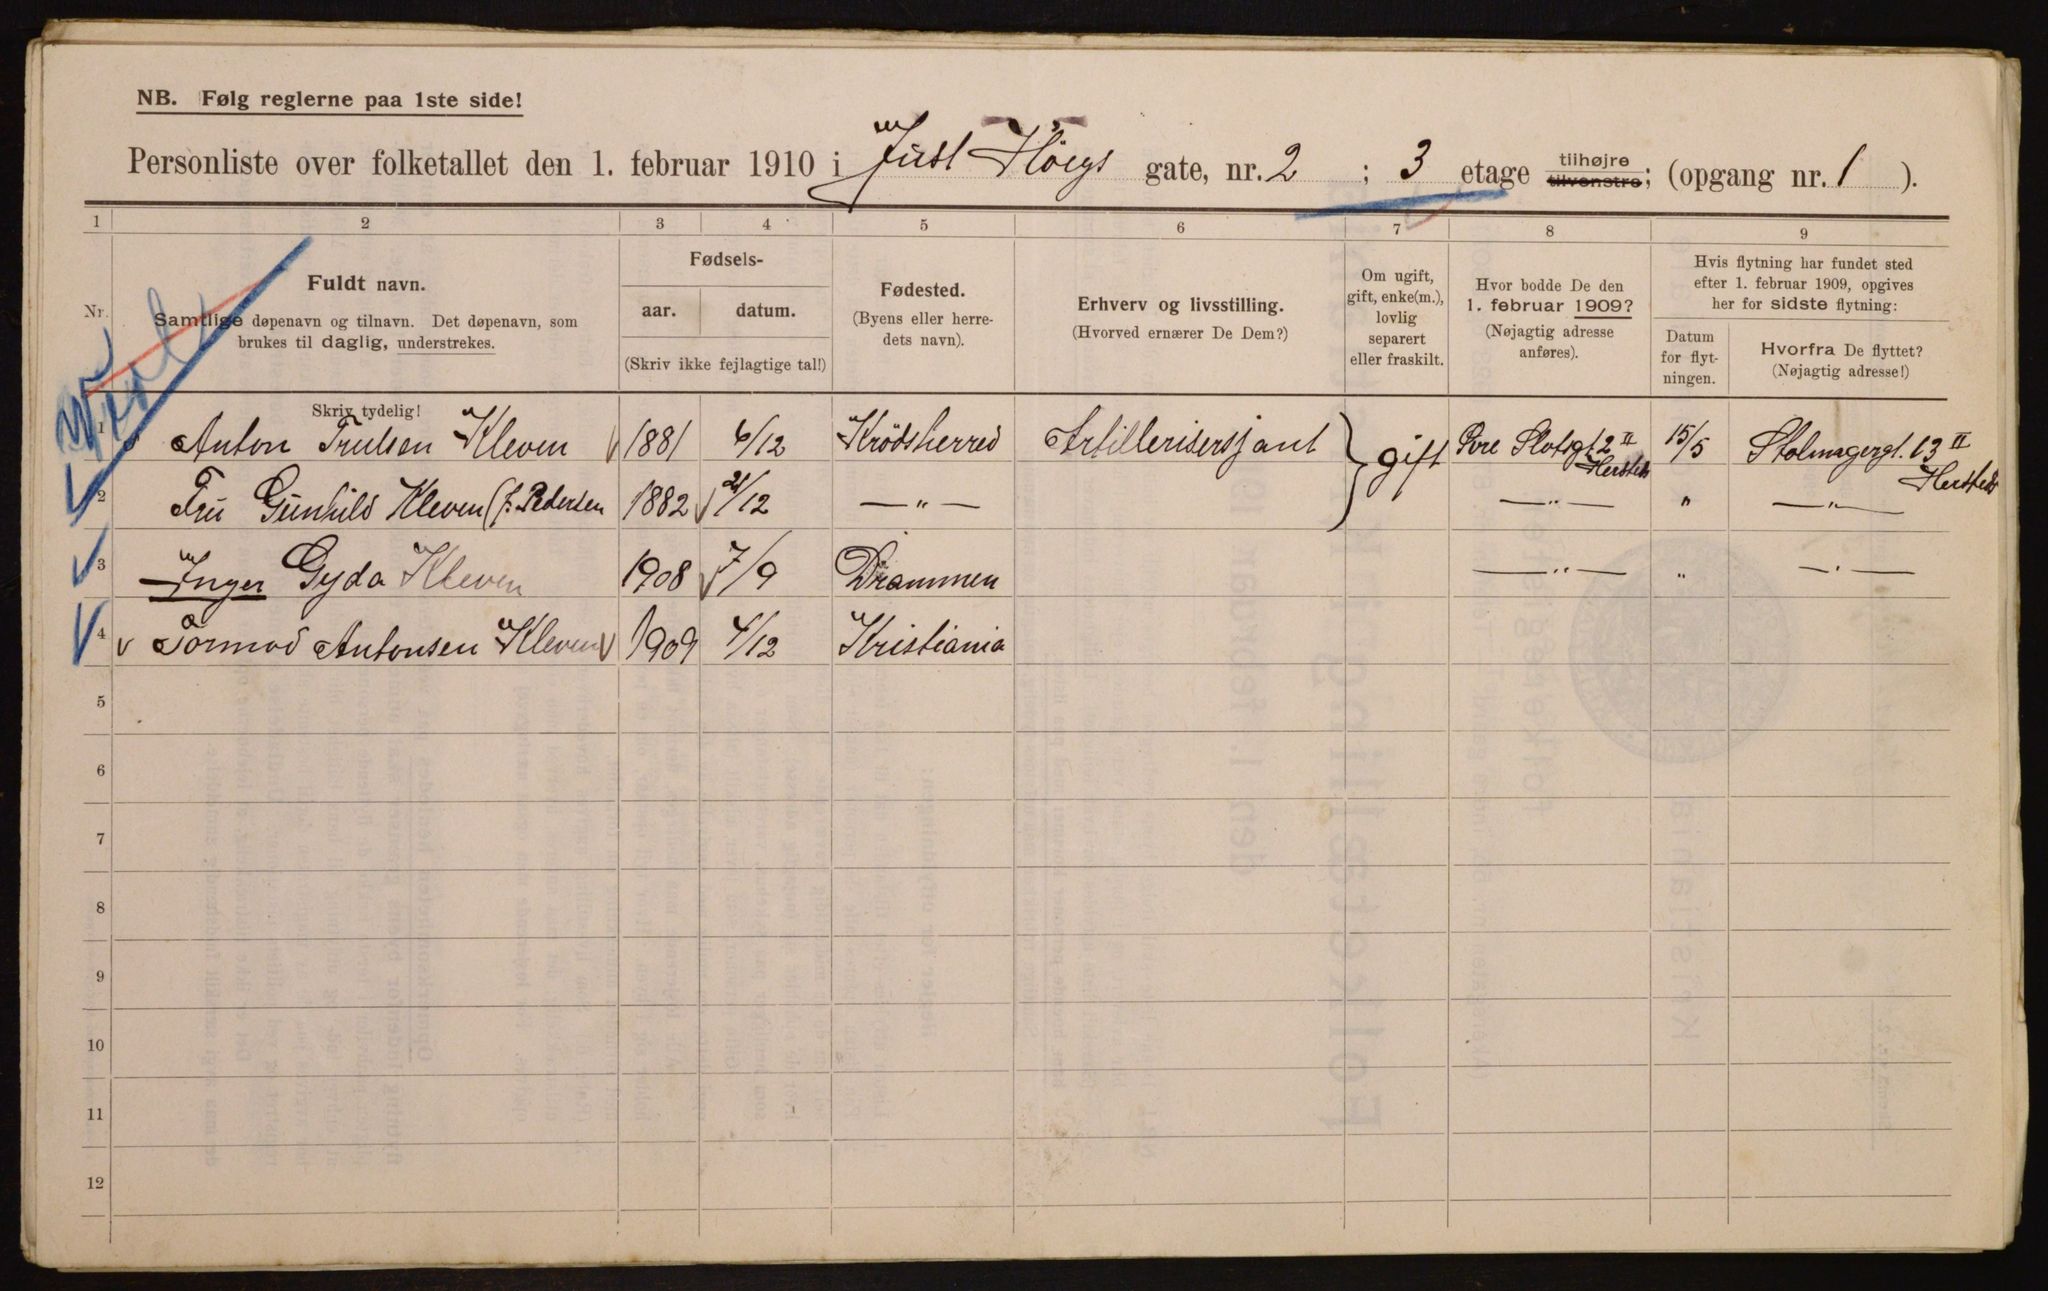 NB. Følg reglerne paa 1ste side!
Personliste over folketallet den 1. februar 1910 i Just Høegs gate, nr. 2 ; 3 etage tilhøjre tilvenstre; (opgang nr. 1 ).
1 2 3 4 5 6 7 8 9
Nr.
Fuldt navn.
Samtlige døpenavn og tilnavn. Det døpenavn, som
brukes til daglig, understrekes.
Skriv tydelig!
Fødsels-
aar. datum.
(Skriv ikke fejlagtige tal!)
Fødested.
(Byens eller herre-
dets navn).
Erhverv og livsstilling.
(Hvorved ernærer De Dem?)
Om ugift,
gift, enke(m.),
lovlig
separert
eller fraskilt.
Hvor bodde De den
1. februar 1909?
(Nøjagtig adresse
anføres).
Hvis flytning har fundet sted
efter 1. februar 1909, opgives
her for sidste flytning:
Datum
for flyt-
ningen.
Hvorfra De flyttet?
(Nøjagtig adresse!)
1 Anton Trulsen Kleven 1881 6/12 Krödsherred Artillerisersjant } gift Øvre Slotsgt 2 II 15/5 Stolmagergt. 13 II
2 Fru Gunhild Kleven (f. Pedersen 1882 21/12 — " — — " — " — " —
3 Inger Gyda Kleven 1908 7/9 Drammen — " — " — " —
4 Tormod Antonsen Kleven 1909 4/12 Kristiania
5
6
7
8
9
10
11
12